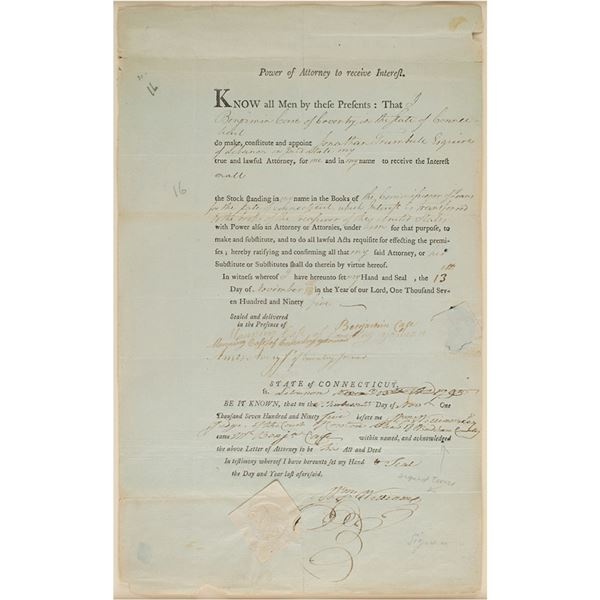 Power of Attorney to receive Interest.
16
KNOW all Men by these Presents: That I
Benjamin Case of Coventry in the State of Connec
ticut
do make, constitute and appoint Jonathan Trumbull Esquire
of Lebanon in said State my
true and lawful Attorney, for me and in my name to receive the Interest
on all
16
the Stock standing in my name in the Books of the Commissioner of Loans
for the State of Connecticut which Interest is transferred
to the books of the of the United States
with Power also an Attorney or Attornies, under him for that purpose, to
make and substitute, and to do all lawful Acts requisite for effecting the premi-
ses; hereby ratifying and confirming all that my said Attorney, or his
Substitute or Substitutes shall do therein by virtue hereof.
In witness whereof I have hereunto set my Hand and Seal, the 13th
Day of November in the Year of our Lord, One Thousand Seven
Hundred and Ninety five
Sealed and delivered
in the Presence of
Benjamin Case
of Coventry
STATE of CONNECTICUT,
ss. Lebanon 1795
BE IT KNOWN, that on the Day of One
Thousand Seven Hundred and Ninety five before me
of the Court of
came Mr Benja Case within named, and acknowledged
the above Letter of Attorney to be his Act and Deed
In testimony whereof I have hereunto set my Hand & Seal
the Day and Year last aforesaid.
Wm Williams
Signer